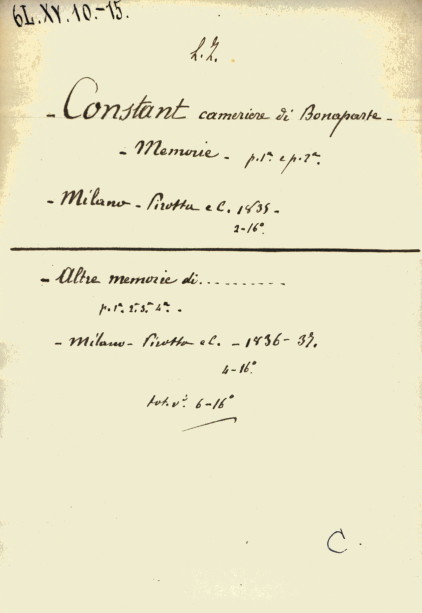 6L.XV.10.-15.
L.Z.
- Constant cameriere di Bonaparte -
- Memorie - p.1ª e p.2ª.
- Milano - Pirotta e C. 1835 -
2-16°
- Altre memorie di..........
p.1ª 2ª 3ª 4ª. -
- Milano - Pirotta e C. - 1836-37.
4-16°
tot. vi 6-16°
C.